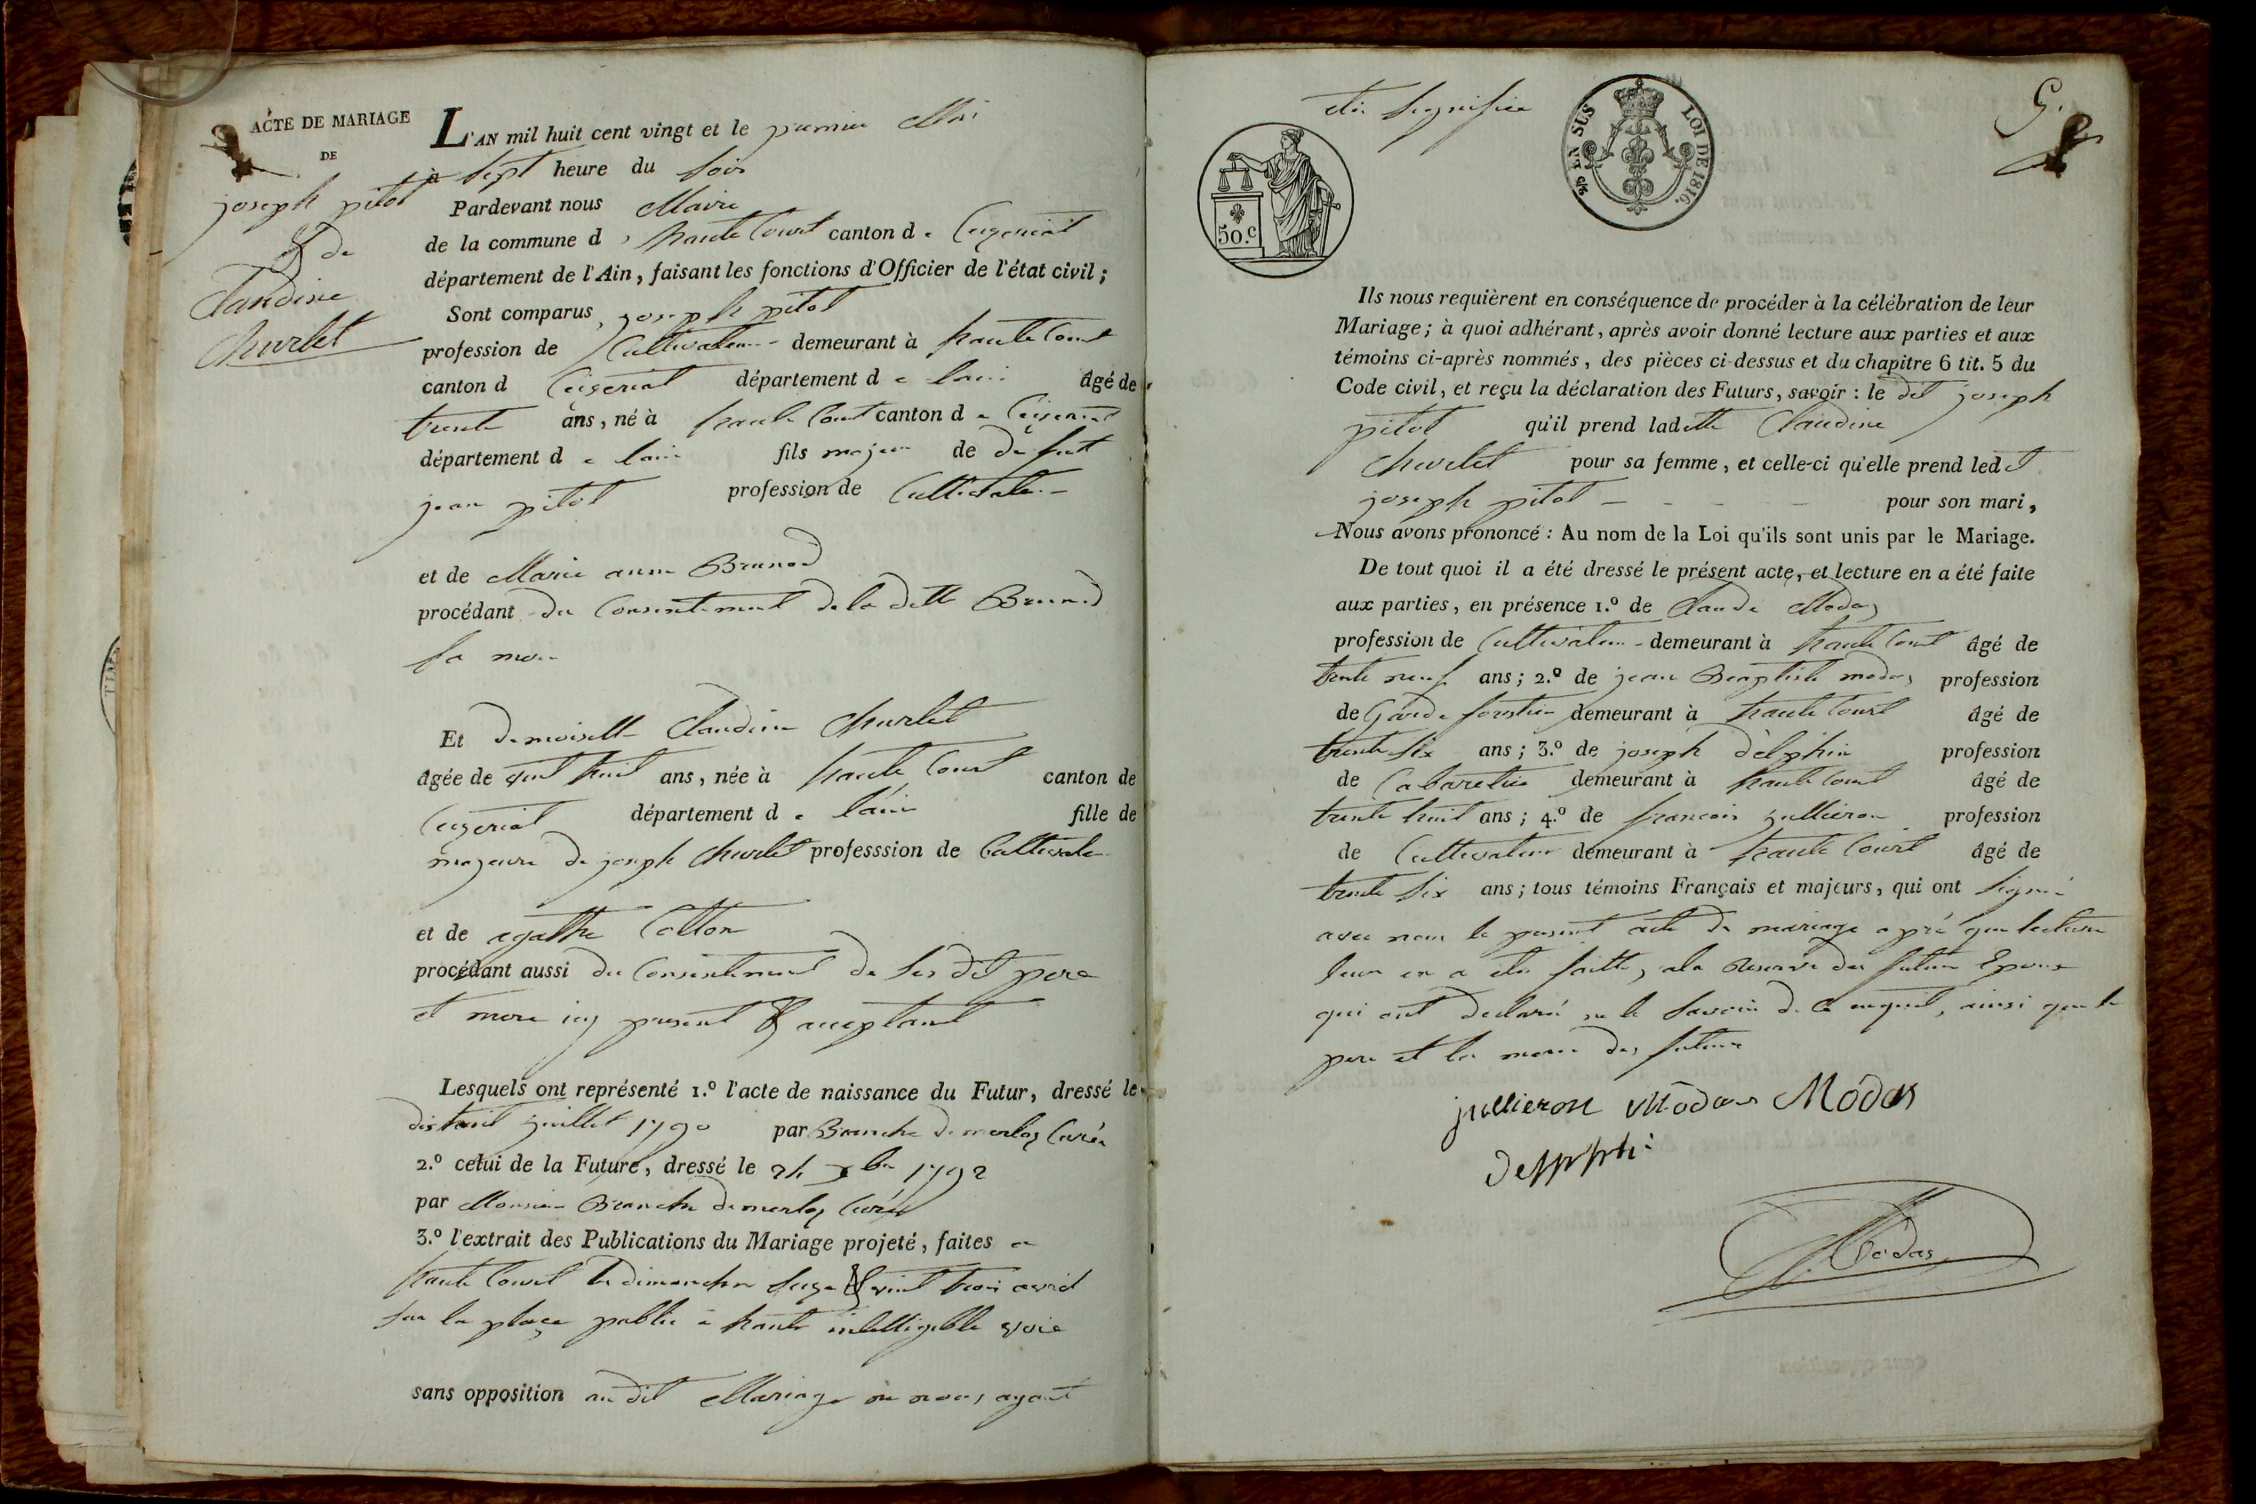 ACTE DE MARIAGE
DE
joseph pitot
& de
Claudine
Churlet
L'AN mil huit cent vingt et le premier Mai
à sept heure du soir
Pardevant nous Maire
de la commune d haute Court canton de Ceyzeriat
département de l'Ain, faisant les fonctions d'Officier de l'état civil;
Sont comparus, joseph pitot
profession de Cultivateur demeurant à haute Court
canton d Ceizeriat département de lain âgé de
trente ans, né à haute Court canton de Ceizeriat
département de lain fils majeur de défunt
jean pitot profession de Cultivateur
et de Marie anne Brunod
procédant du Consentement de la ditte Brunod
sa mere
Et demoiselle Claudine Churlet
âgée de vint huit ans, née à haute Court canton de
Ceyzeriat département de lain fille de
majeure de joseph Churlet professsion de Cultivateur
et de agathe Cotton
procédant aussi du Consentement de ses dit pere
et mere icy present & acceptant
Lesquels ont représenté 1.º l'acte de naissance du Futur, dressé le
dix huit juillet 1790 par Branche demerloz Curé
2.º celui de la Future, dressé le 24 xbre 1792
par Monsieur Branche demerloz Curé
3.º l'extrait des Publications du Mariage projeté, faites a
haute Court les dimanches seize & vint trois avril
sur la place public a haute intelligible voie
sans opposition au dit Mariage ne nous ayant
été signifiée
5.
50.c
EN SUS LOI DE 1816.
Ils nous requièrent en conséquence de procéder à la célébration de leur
Mariage; à quoi adhérant, après avoir donné lecture aux parties et aux
témoins ci-après nommés, des pièces ci-dessus et du chapitre 6 tit. 5 du
Code civil, et reçu la déclaration des Futurs, savoir : le dit joseph
pitot qu'il prend ladette Claudine
Churlet pour sa femme, et celle-ci qu'elle prend ledit
joseph pitot pour son mari,
Nous avons prononcé : Au nom de la Loi qu'ils sont unis par le Mariage.
De tout quoi il a été dressé le présent acte, et lecture en a été faite
aux parties, en présence 1.º de Claude Modas
profession de Cultivateur demeurant à haute Court âgé de
trente neuf ans; 2.º de jean Baptiste modas profession
de Garde forestier demeurant à haute Court âgé de
trente six ans; 3.º de joseph délphin profession
de Cabaretier demeurant à haute Court âgé de
trente huit ans; 4.º de francois jullieron profession
de Cultivateur demeurant à haute Court âgé de
trente six ans; tous témoins Français et majeurs, qui ont signé
avec nous le present acte de mariage apré que lecture
leur en a été faitte, ala Reserve des futurs Epoux
qui ont declaré ne le savoir de ce enquit, ainsi que le
pere et les meres des futurs
jullieron Modas Modas
delphin
Modas